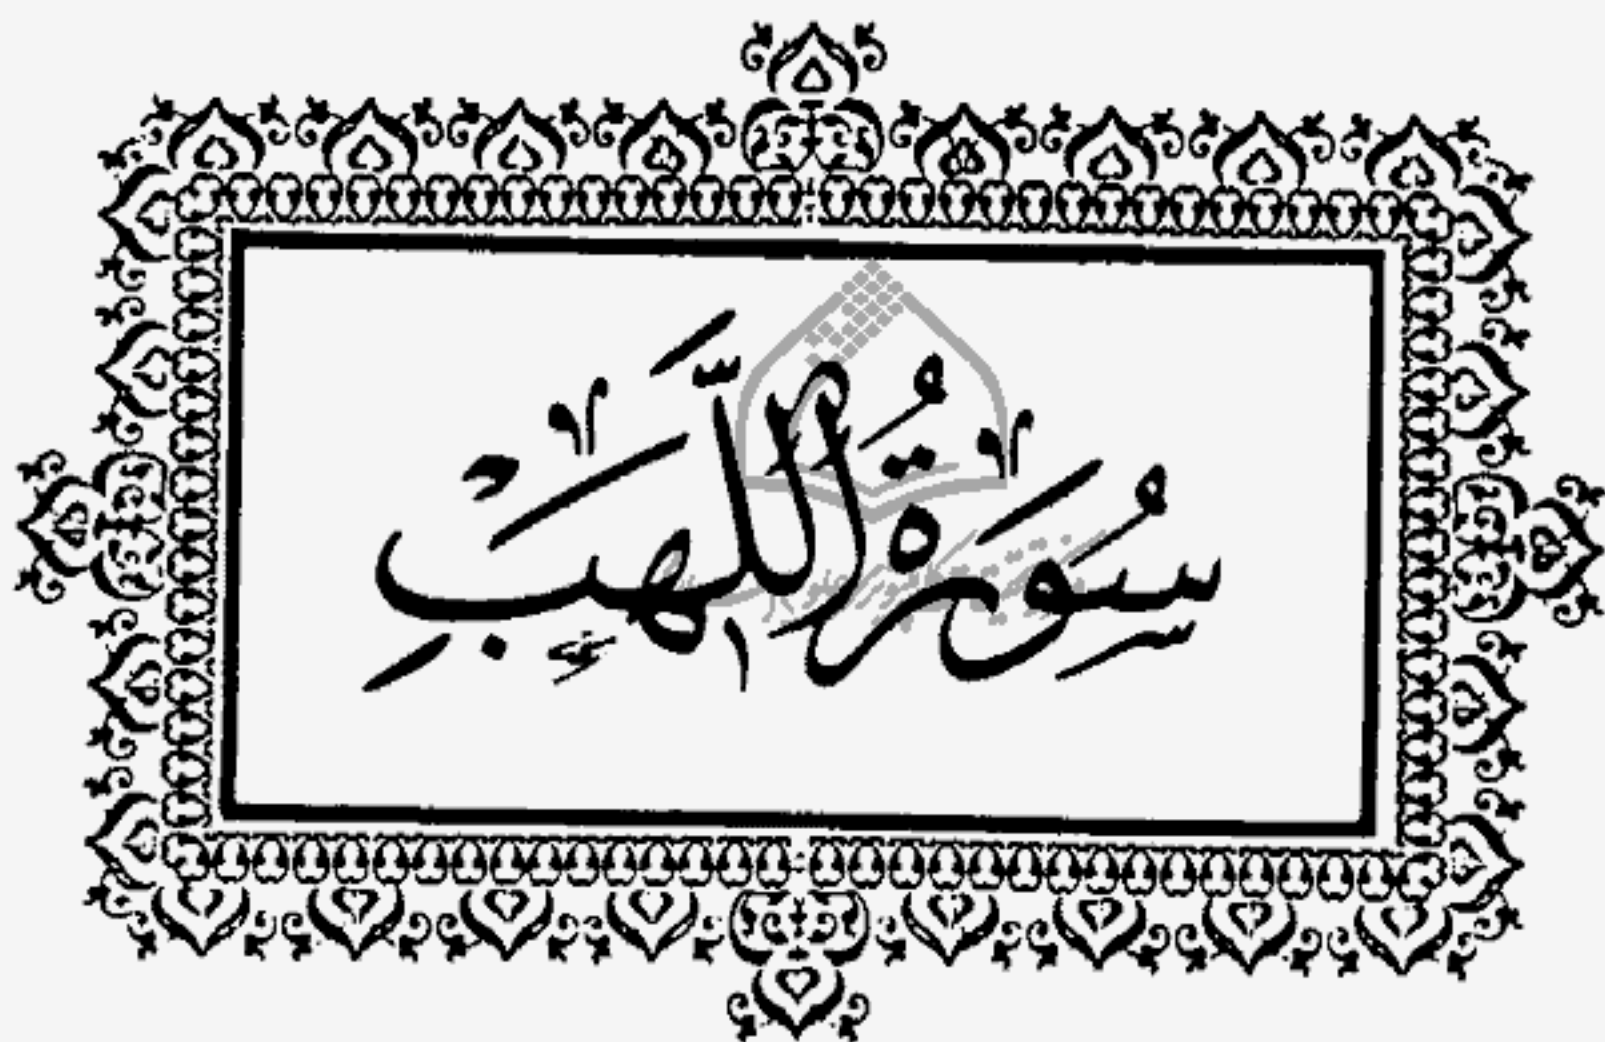 سُورَةُ اللَّهَبِ